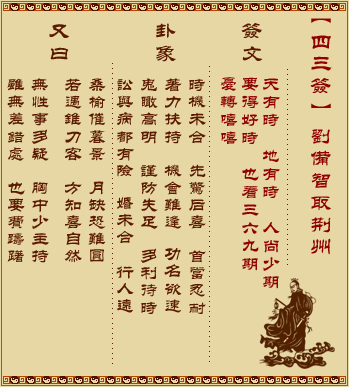 【四三簽】 劉備智取荆州
簽文
天有時 地有時 人尚少期
要得好時 也看三六九期
憂轉嘻嘻
卦象
時機未合 先驚后喜 首當忍耐
著力扶持 機會難逢 功名欲速
鬼瞰高明 謹防失足 多利待時
訟與病都有險 婚未合 行人遠
又曰
桑榆催暮景 月缺恐難圓
若遇錐刀客 方知喜自然
無性事多疑 胸中少主持
雖無差錯處 也要費躊躇